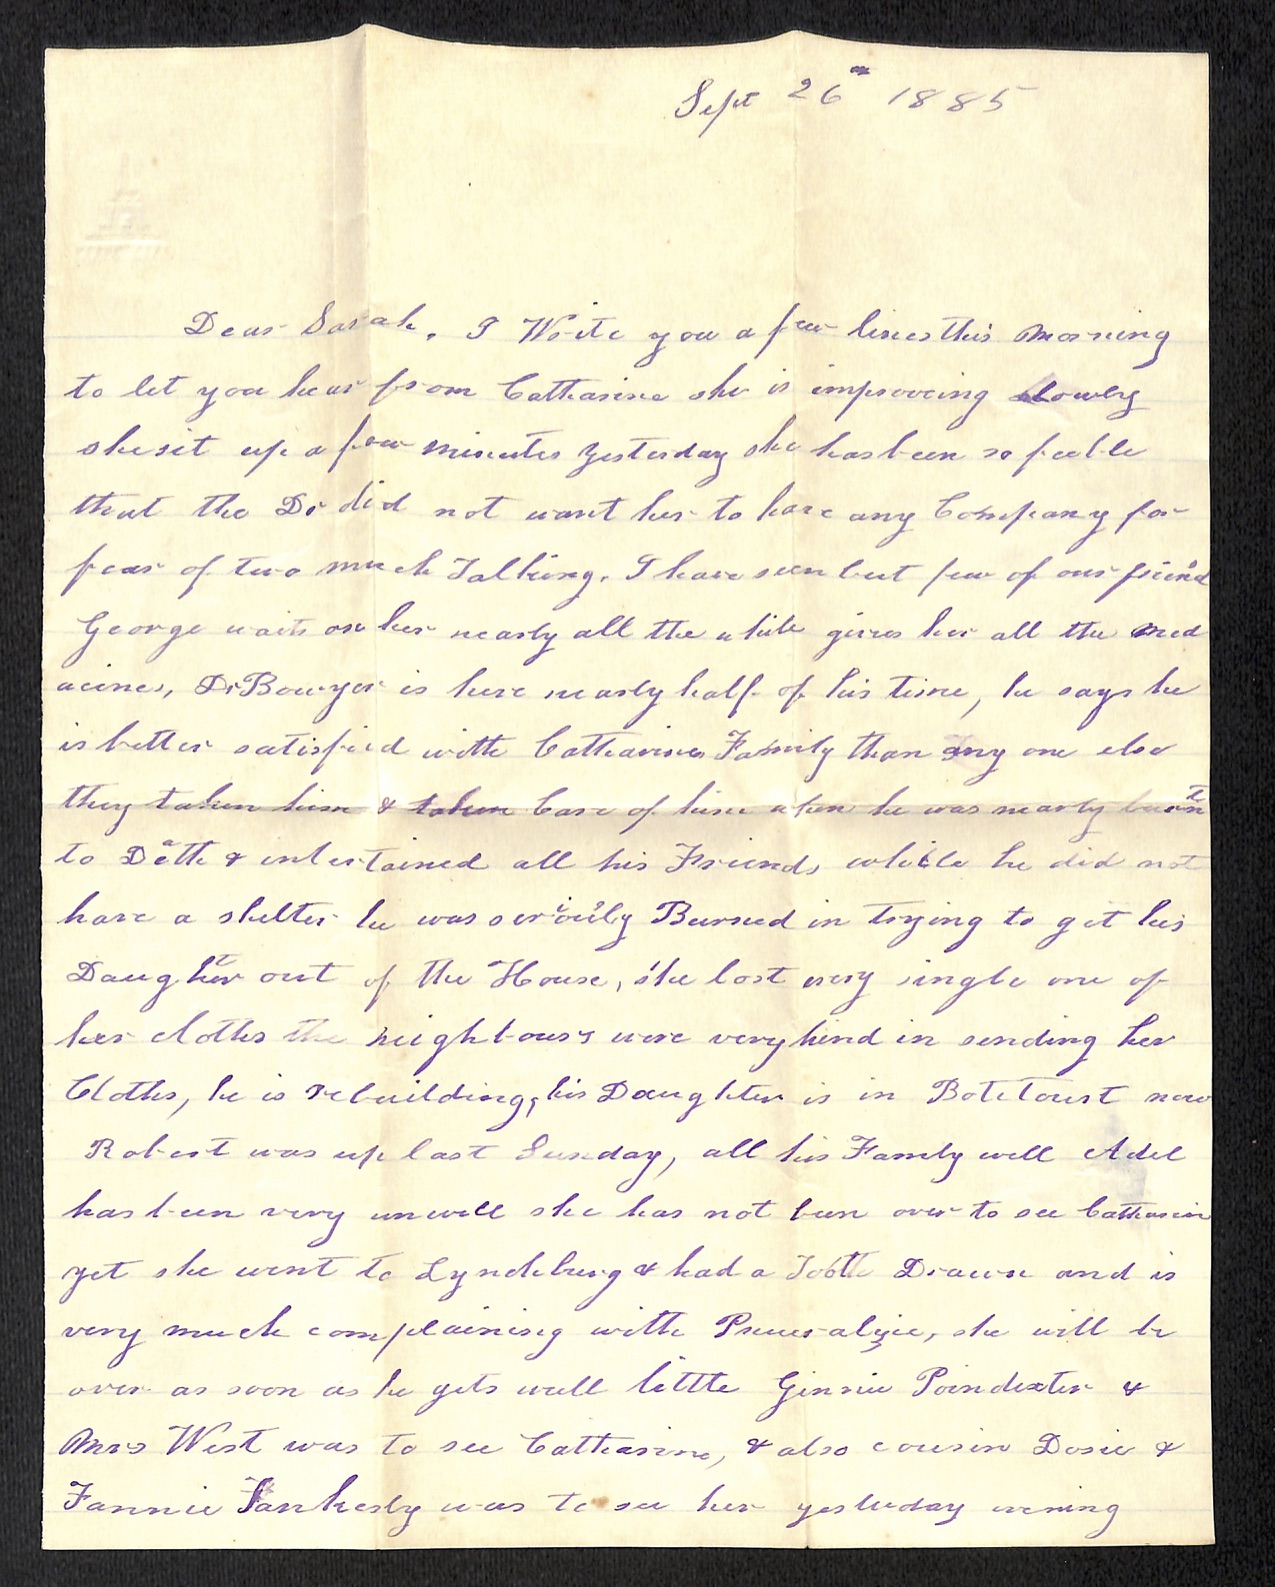 Sept 26th 1885
Dear Sarah, I Write you a few lines this Morning
to let you hear from Catharine she is improoving slowly
she sit up a few minutes yesterday she has been so feeble
that the Dr did not want her to have any Company for
fear of two much Talking. I have seen but few of our friend
George waits on her nearly all the while gives her all the med
acines, Dr Bowyer is here nearly half of his time, he says he
is better satisfied with Catharines Family than any one else
they taken him & taken Care of him when he was nearly burnt
to Deth & intertained all his Friends while he did not
have a shelter he was seriously Burned in trying to get his
Daughter out of the House, she lost every single one of
her cloths the neighbours were very kind in sending her
Cloths, he is rebuilding, his Daughter is in Botetourt now
Robert was up last Sunday, all his Family well Adel
has been very unwell she has not been over to see Catharin
yet she went to Lynchburg & had a Tooth Drawn and is
very much complaining with she will be
over as soon as he gets well little Ginnie Poindexter &
Mrs West was to see Catharine, & also cousin Dosie &
Fannie was to see her yesterday evening